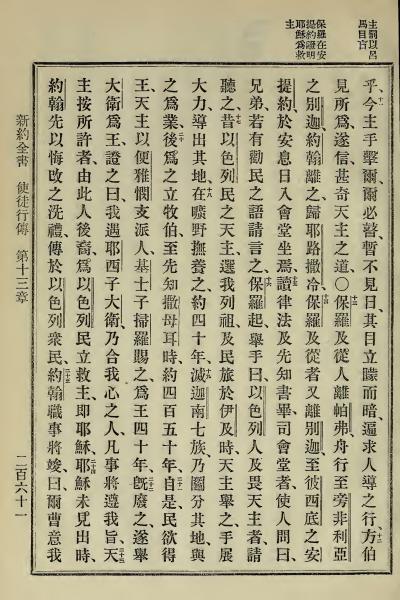 主罰以呂
馬目盲
保羅在安
提約證明
耶穌爲救
主
乎、今主手擊爾、爾必瞽、暫不見日、其目立矇而暗、遍求人導之行、方伯
見所爲、遂信、甚奇天主之道、〇保羅及從人離帕弗、舟行至旁非利亞
之別迦、約翰離之、歸耶路撒冷、保羅及從者又離別迦、至彼西底之安
提約、於安息日入會堂坐焉、讀律法及先知書畢、司會堂者使人問曰、
兄弟、若有勸民之語、請言之、保羅起、舉手曰、以色列人及畏天主者、請
聽之、昔以色列民之天主、選我列祖、及民旅於伊及時、天主舉之、手展
大力、導出其地、在曠野撫養之、約四十年、滅迦南七族、乃鬮分其地、與
之爲業、後爲之立牧伯、至先知撒母耳時、約四百五十年、自是民欲得
王、天主以便雅憫支派人、基士子掃羅賜之、爲王四十年、旣廢之、遂舉
大衛爲王、證之曰、我遇耶西子大衛、乃合我心之人、凡事將遵我旨、天
主按所許者、由此人後裔、爲以色列民立救主、即耶穌、耶穌未見出時、
約翰先以悔改之洗禮、傳於以色列衆民、約翰職事將竣、曰、爾曹意我
新約全書 使徒行傳 第十三章 二百六十一